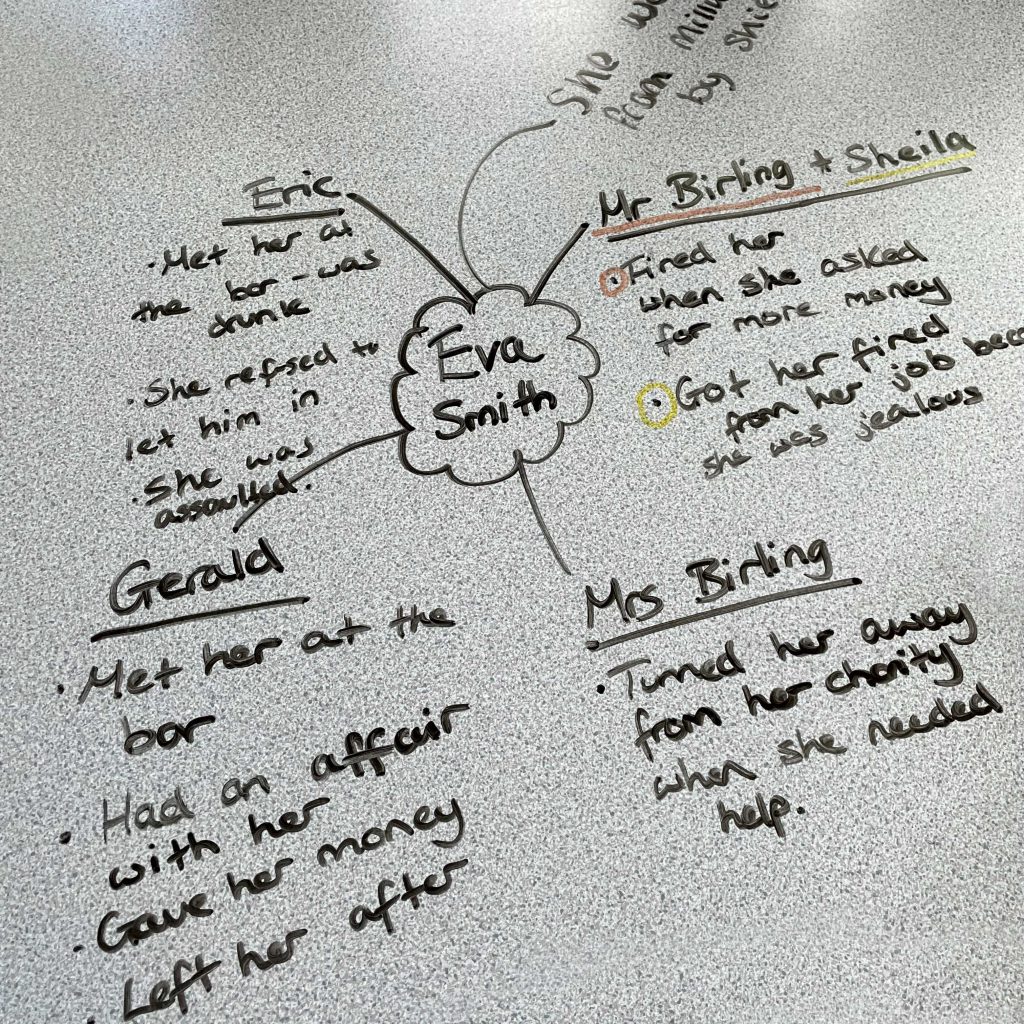 She
from
by
Eric
• Met her at
the bar - was
drunk
• She refused to
let him in
• She was
assaulted.
Mr Birling + Sheila
• Fired her
when she asked
for more money
• Got her fired
from her job
she was jealous
Eva
Smith
Gerald
• Met her at the
bar
• Had an affair
with her
• Gave her money
• Left her after
Mrs Birling
• Turned her away
from her charity
when she needed
help.